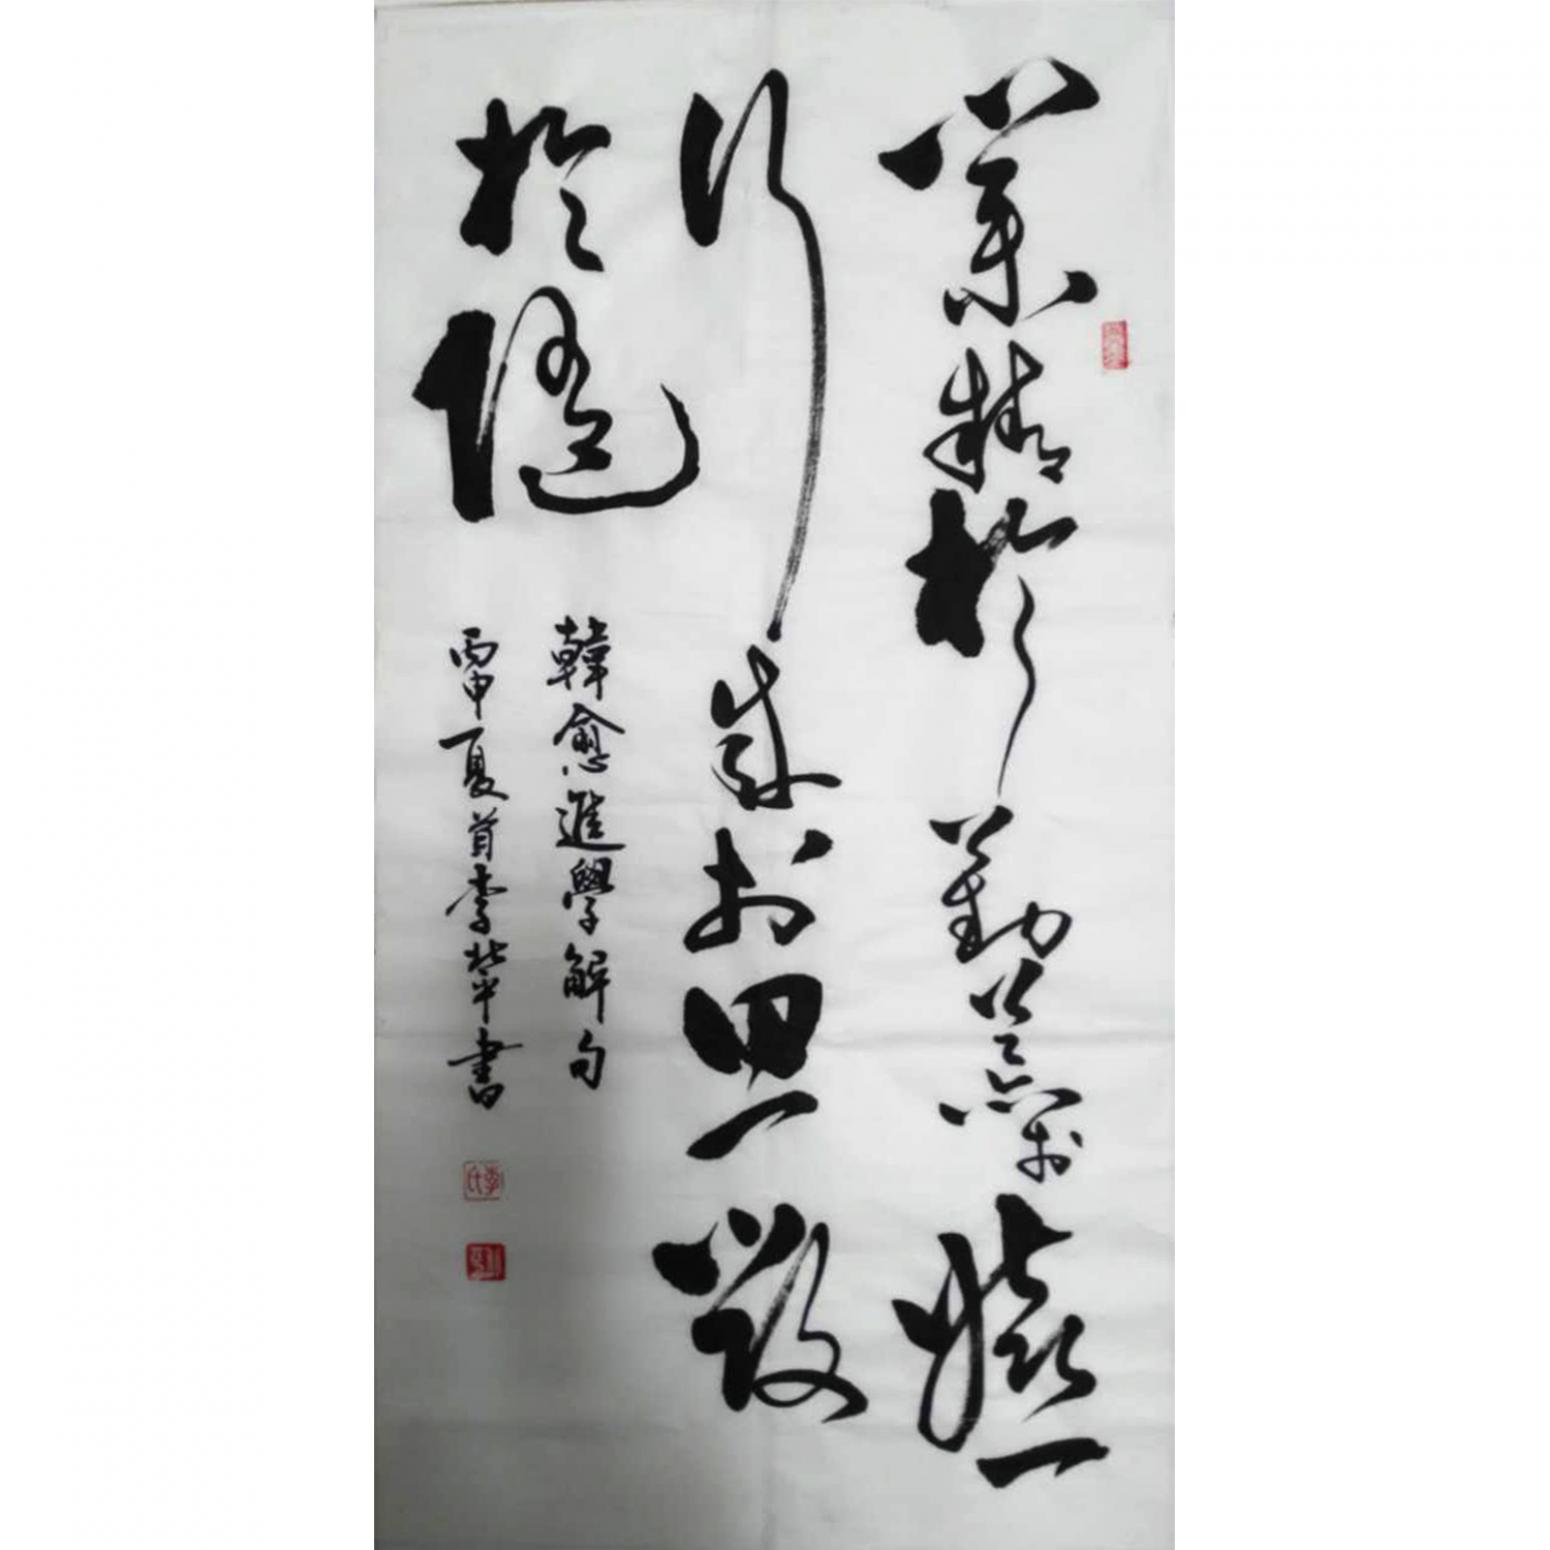 業精於勤荒於嬉
行成於思毀
於隨
韓愈進學解句
丙申夏首李平書
李氏